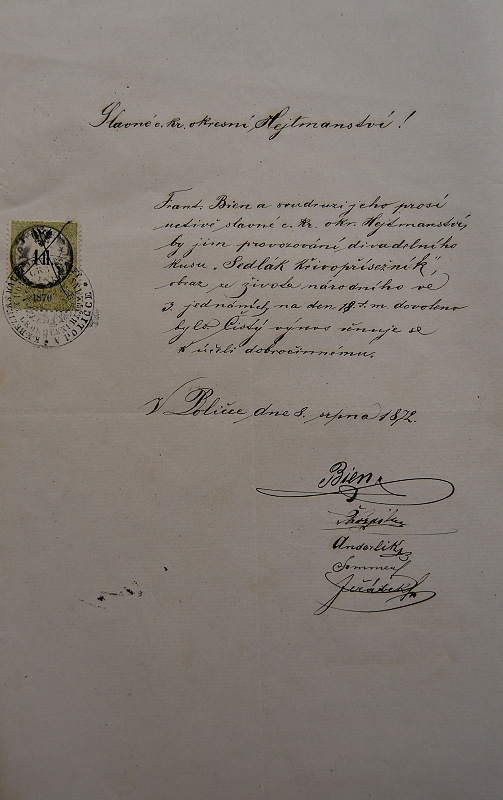 Slavné c. kr. okresní Hejtmanství!
Frant. Bien a soudruzi jeho prosí
uctivě slavné c. kr. okr. Hejtmanství,
by jim provozování divadelního
kusu „Sedlák Křivopřísežník",
obraz z života národního ve
3 jednáních, na den 18. t. m. dovoleno
bylo. Čistý výnos věnuje se
k účeli dobročinnému.
V Poličce dne 8. srpna 1872.
Bien
Anderlik
Sommer
Jeřábek
1870